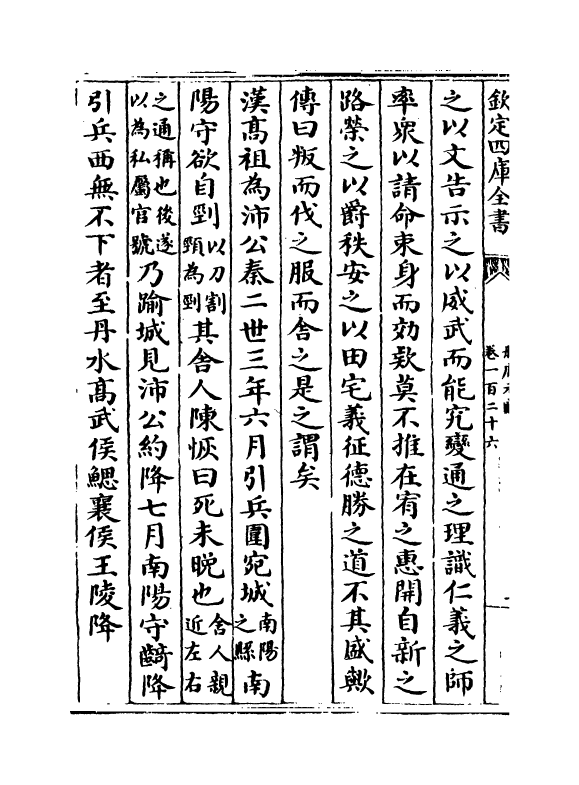 欽定四庫全書
卷一百二十六
之以文告示之以威武而能究變通之理識仁義之師
率衆以請命束身而効欵莫不推在宥之惠開自新之
路榮之以爵秩安之以田宅義征德勝之道不其盛歟
傳曰叛而伐之服而舎之是之謂矣
漢髙祖為沛公秦二世三年六月引兵圍宛城南陽之縣南
陽守欲自剄以刀割頸為剄其舎人陳恢曰死未晚也舎人親近左右
之通稱也後遂以為私屬官號乃踰城見沛公約降七月南陽守齮降
引兵西無不下者至丹水髙武侯鰓襄侯王陵降